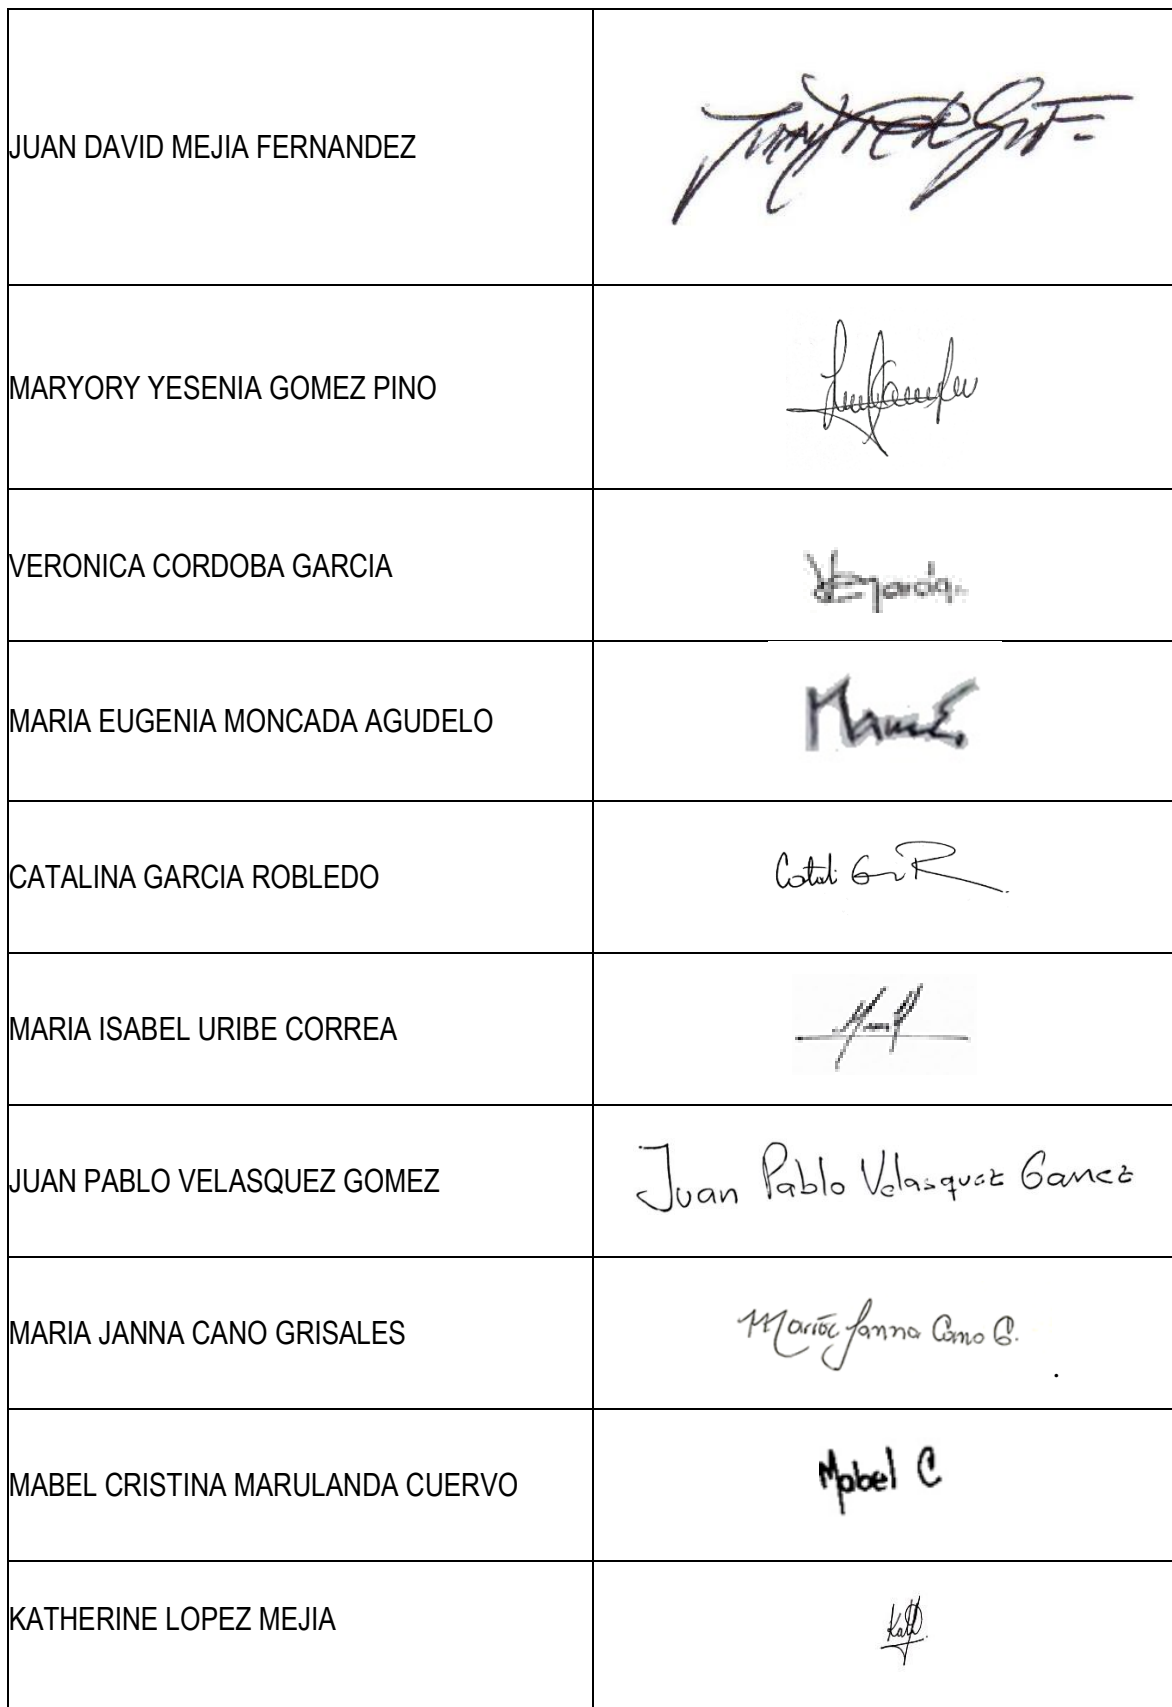 JUAN DAVID MEJIA FERNANDEZ
MARYORY YESENIA GOMEZ PINO
VERONICA CORDOBA GARCIA
MARIA EUGENIA MONCADA AGUDELO
CATALINA GARCIA ROBLEDO
MARIA ISABEL URIBE CORREA
JUAN PABLO VELASQUEZ GOMEZ Juan Pablo Velasquez Gomez
MARIA JANNA CANO GRISALES Maria Janna Cano G.
MABEL CRISTINA MARULANDA CUERVO Mabel C
KATHERINE LOPEZ MEJIA Kath